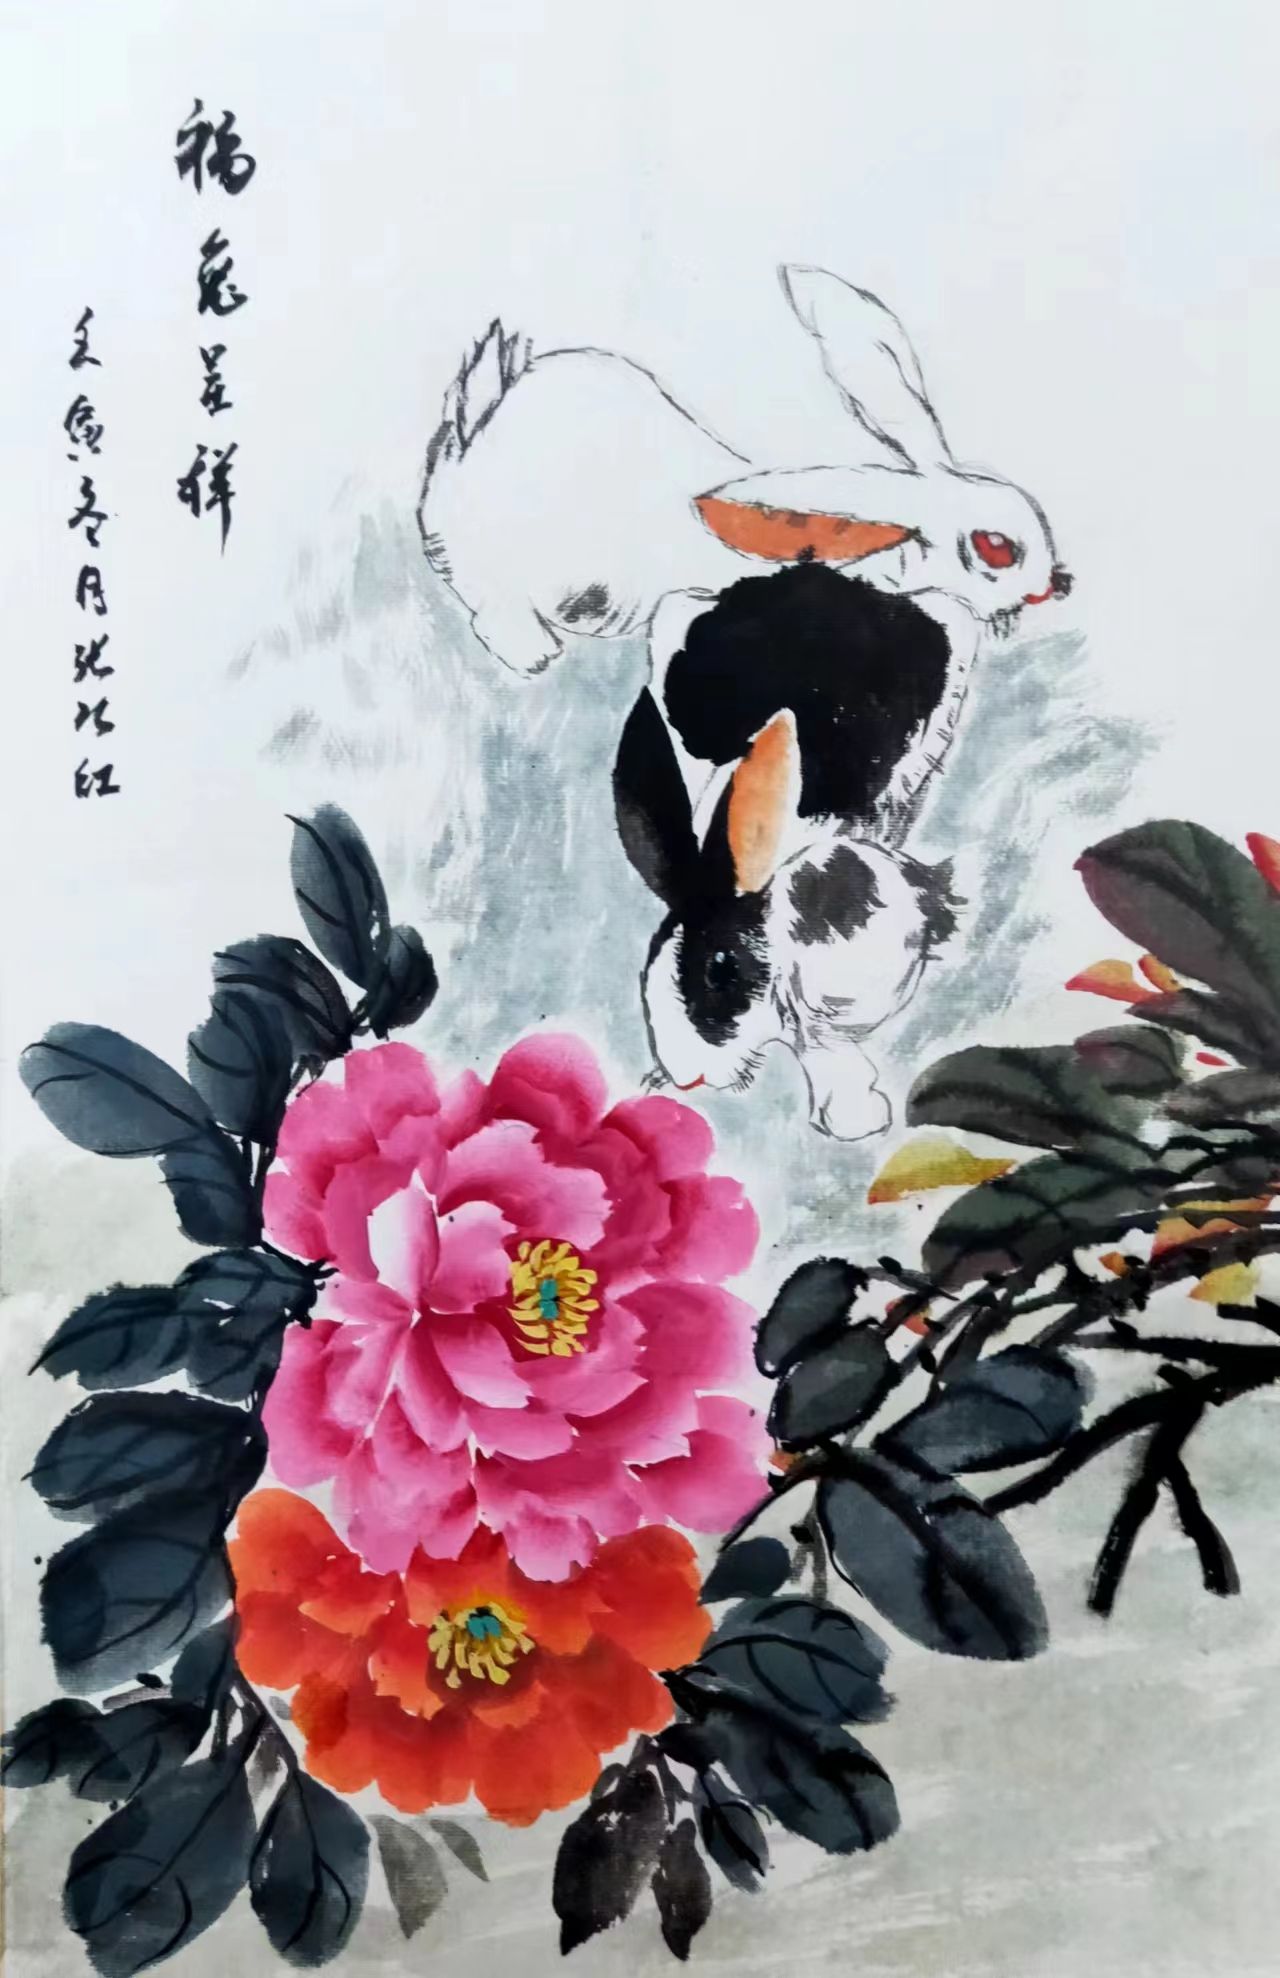 福兔呈祥
壬寅冬月张次红